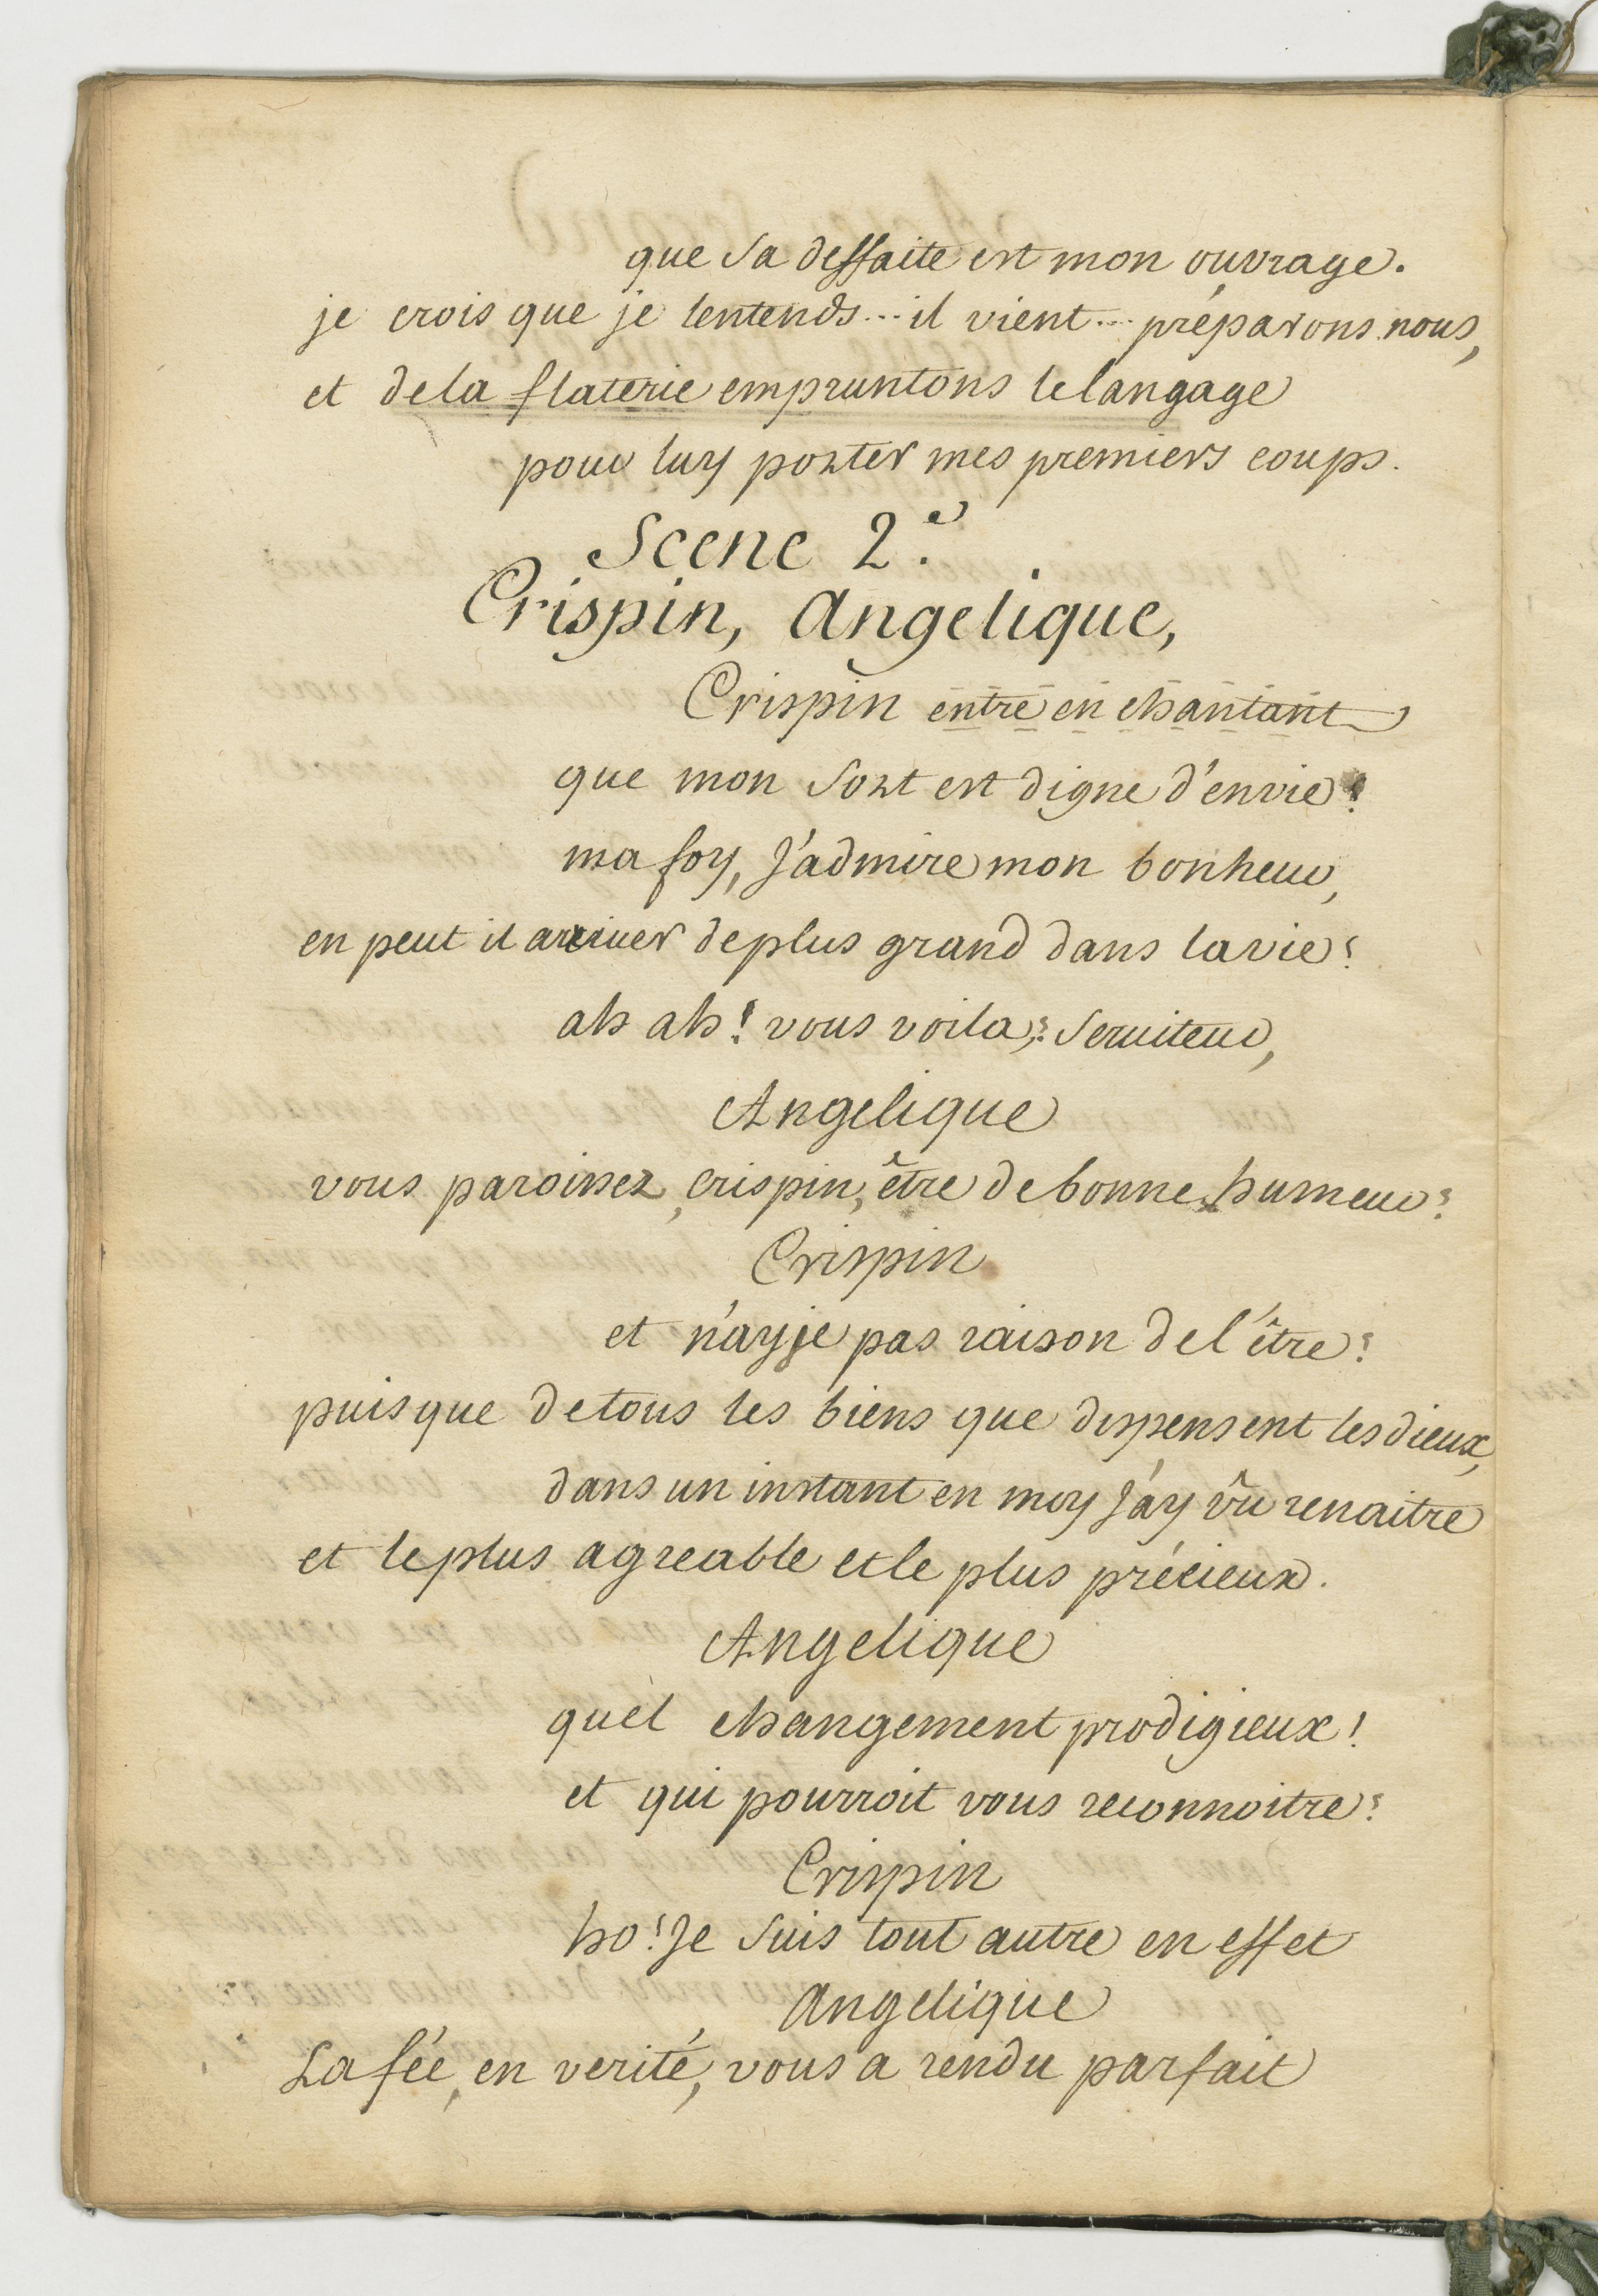 que sa deffaite est mon ouvrage.
je crois que je lentends... il vient... préparons nous,
et de la flaterie empruntons le langage
pour luy porter mes premiers coups.
Scene 2.e
Crispin, Angelique,
Crispin entre en chantant
que mon sort est digne d'envie!
ma foy, j'admire mon bonheur,
en peut il arriver de plus grand dans la vie?
ah ah! vous voila? serviteur,
Angelique
vous paroissez, crispin, être de bonne humeur?
Crispin
et n'ay je pas raison de l'être?
puisque de tous les biens que dispensent les dieux,
dans un instant en moy j'ay vû renaitre
et le plus agreable et le plus précieux.
Angelique
quel changement prodigieux!
et qui pourroit vous reconnoitre?
Crispin
ho! je suis tout autre en effet
Angelique
La fée, en verité, vous a rendu parfait